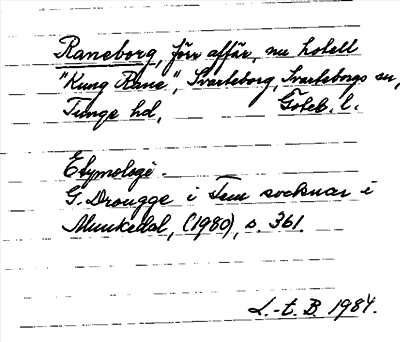 Raneborg, förr affär, nu hotell
"Kung Rane", Svarteborg, Svarteborgs sn,
Tunge hd, Göteb. l.
Etymologi.
G. Drougge i Fem socknar i
Munkedal, (1980), s. 361.
L.-t. B. 1984.